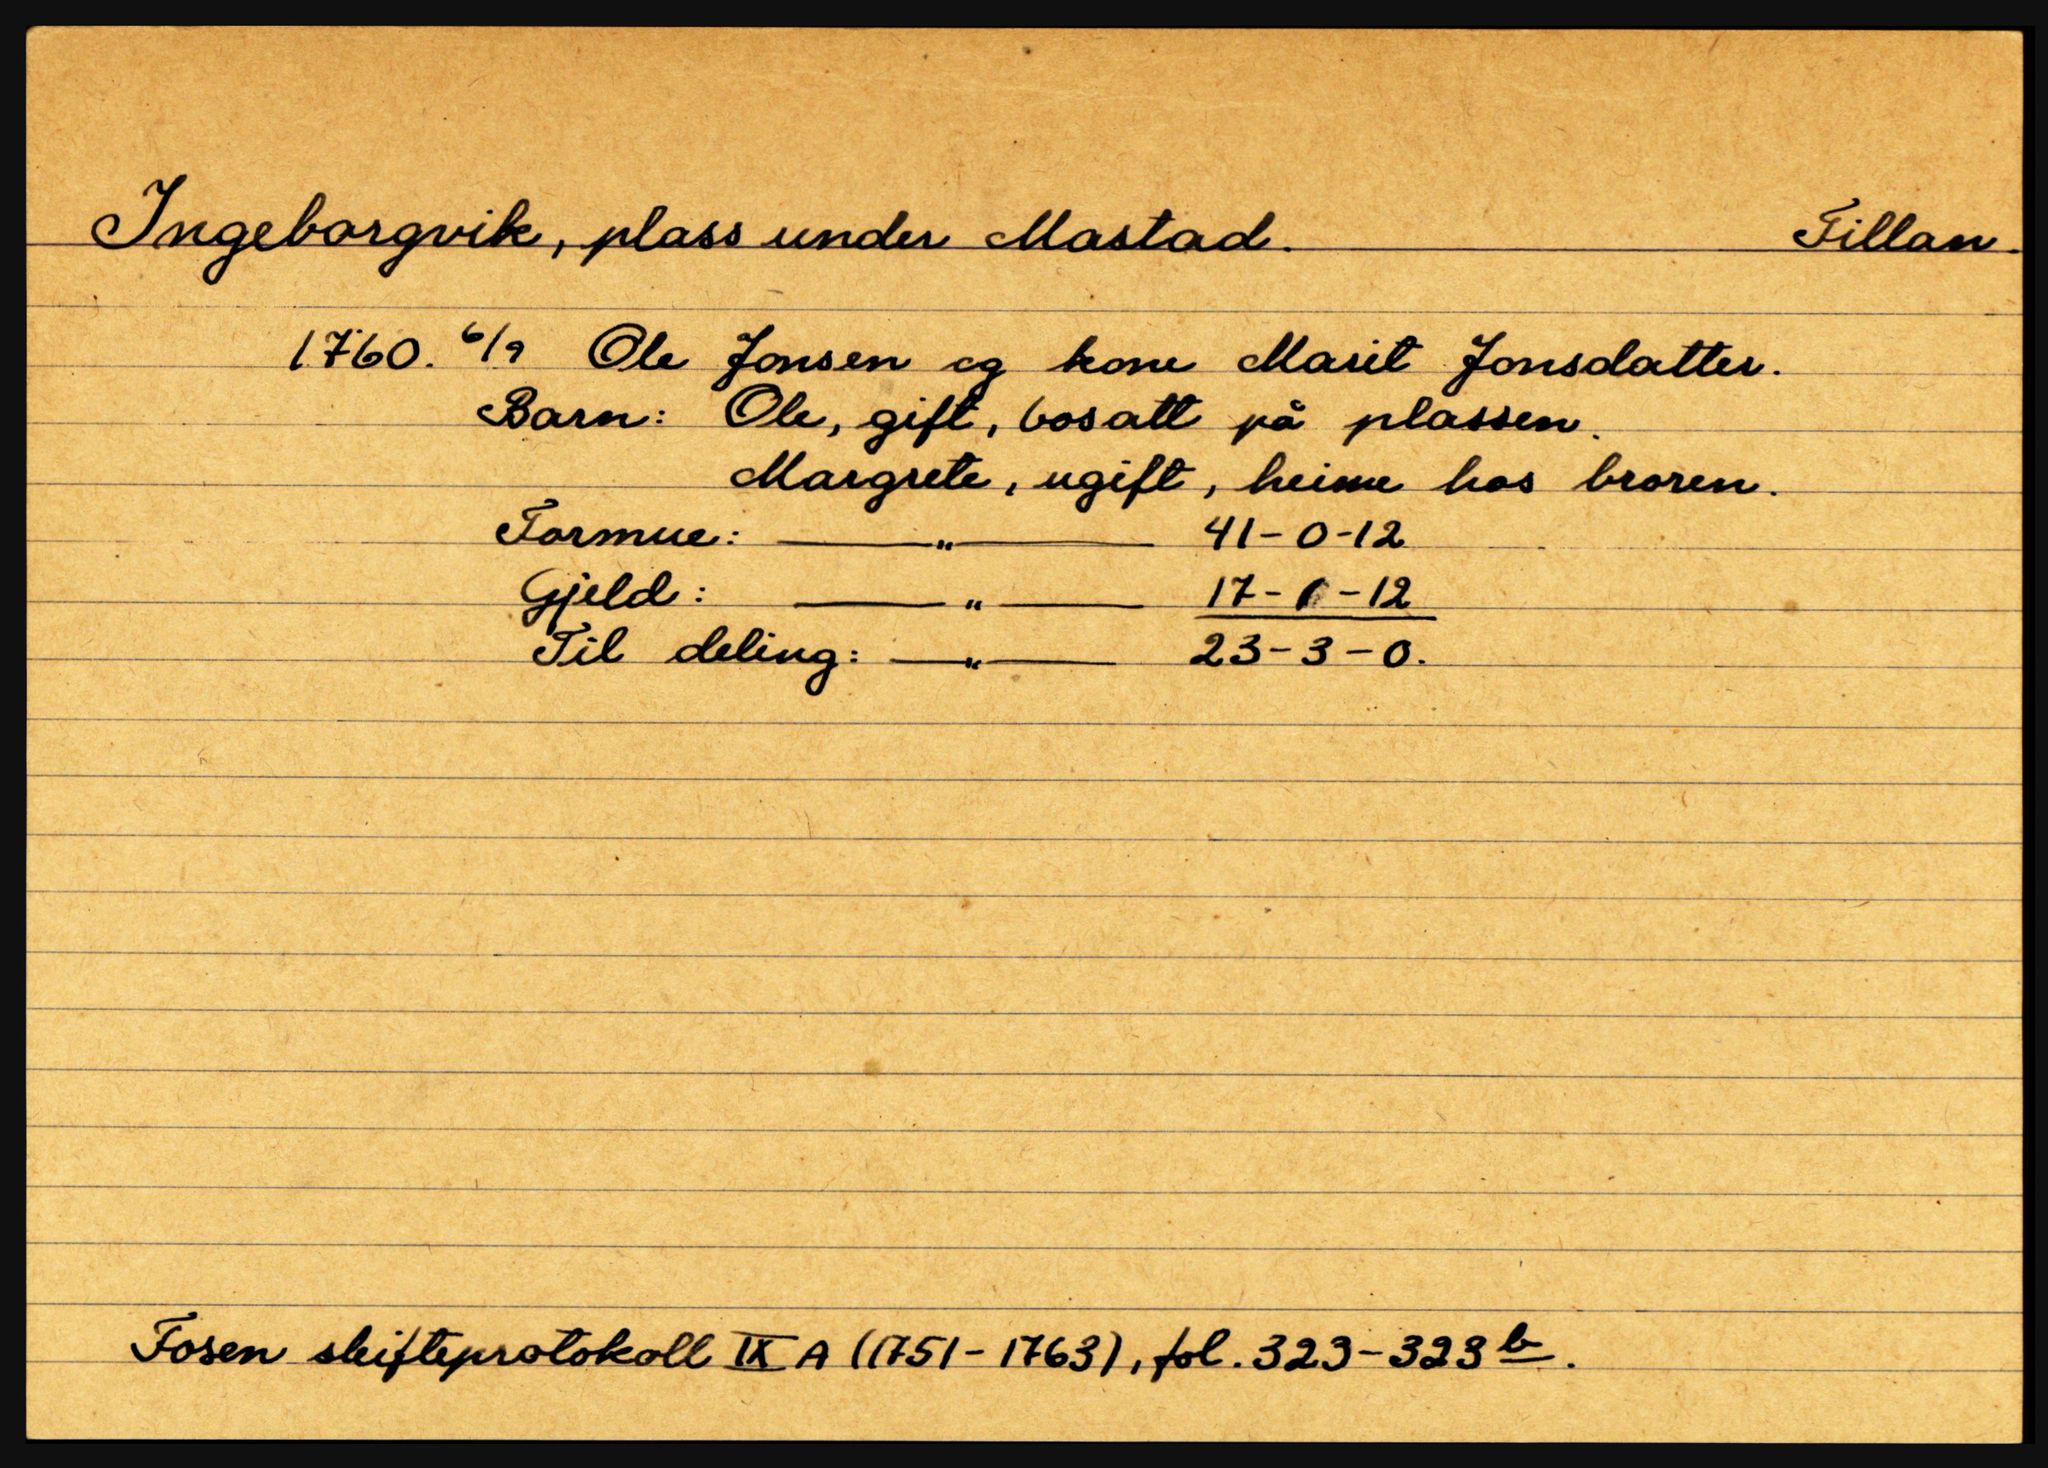 Ingeborgvik, plass under Mastad. Fillan.
1760. 6/9 Ole Jonsen og kone Marit Jonsdatter.
Barn: Ole, gift, bosatt på plassen.
Margrete, ugift, heime hos broren.
Formue: —„— 41-0-12
Gjeld: —„— 17-1-12
Til deling: —„— 23-3-0.
Fosen skifteprotokoll IX A (1751-1763), fol. 323-323 b.